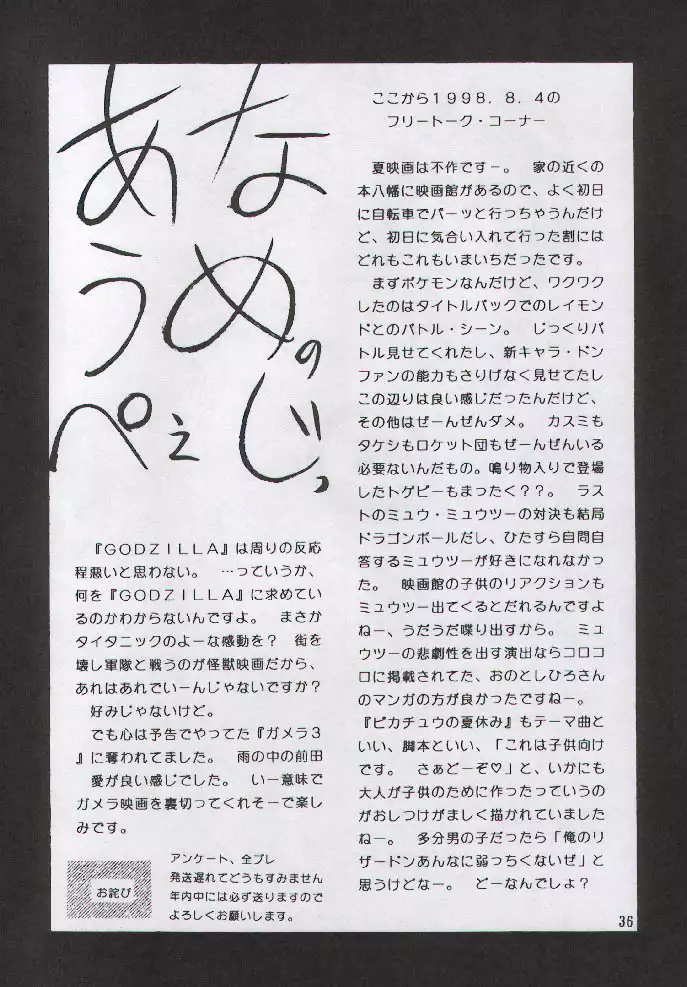 なめのじっ
あうぺぇ
ここから1998.8.4の
フリートーク・コーナー
夏映画は不作ですー。 家の近くの
本八幡に映画館があるので、よく初日
に自転車でパーッと行っちゃうんだけ
ど、初日に気合い入れて行った割には
どれもこれもいまいちだったです。
まずポケモンなんだけど、ワクワク
したのはタイトルバックでのレイモン
ドとのバトル・シーン。 じっくりバ
トル見せてくれたし、新キャラ・ドン
ファンの能力もさりげなく見せてたし
この辺りは良い感じだったんだけど、
その他はぜーんぜんダメ。 カスミも
タケシもロケット団もぜーんぜんいる
必要ないんだもの。鳴り物入りで登場
したトゲピーもまったく??。 ラス
トのミュウ・ミュウツーの対決も結局
ドラゴンボールだし、ひたすら自問自
答するミュウツーが好きになれなかっ
た。 映画館の子供のリアクションも
ミュウツー出てくるとだれるんですよ
ねー、うだうだ喋り出すから。 ミュ
ウツーの悲劇性を出す演出ならコロコ
ロに掲載されてた、おのとしひろさん
のマンガの方が良かったですねー。
『ピカチュウの夏休み』もテーマ曲と
いい、脚本といい、「これは子供向け
です。 さぁどーぞ♡」と、いかにも
大人が子供のために作ったっていうの
がおしつけがましく描かれていました
ねー。 多分男の子だったら「俺のリ
ザードンあんなに弱っちくないぜ」と
思うけどなー。 どーなんでしょ?
『GODZILLA』は周りの反応
程悪いと思わない。 …っていうか、
何を『GODZILLA』に求めてい
るのかわからないんですよ。 まさか
タイタニックのよーな感動を? 街を
壊し軍隊と戦うのが怪獣映画だから、
あれはあれでいーんじゃないですか?
好みじゃないけど。
でも心は予告でやってた『ガメラ3
』に奪われてました。 雨の中の前田
愛が良い感じでした。 いー意味で
ガメラ映画を裏切ってくれそーで楽し
みです。
お詫び
アンケート、全プレ
発送遅れてどうもすみません
年内中には必ず送りますので
よろしくお願いします。
36